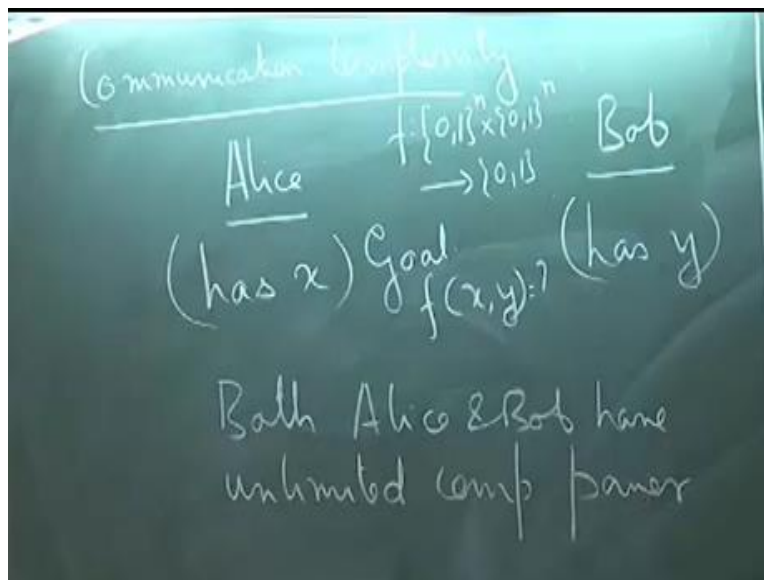 Communication Complexity
f:{0,1}ⁿ×{0,1}ⁿ
→{0,1}
Alice
Bob
(has x)
Goal
f(x,y)=?
(has y)
Both Alice & Bob have
unlimited comp power